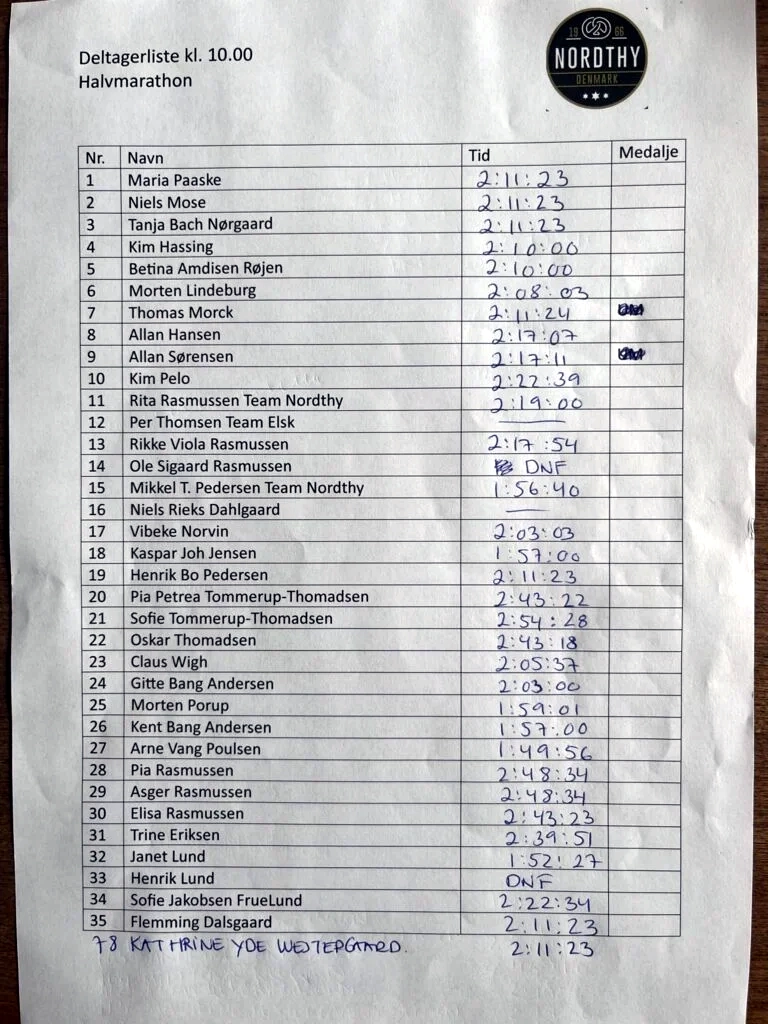 Deltagerliste kl. 10.00
Halvmarathon
19 66
NORDTHY
DENMARK
Nr. Navn Tid Medalje
1 Maria Paaske 2:11:23
2 Niels Mose 2:11:23
3 Tanja Bach Nørgaard 2:11:23
4 Kim Hassing 2:10:00
5 Betina Amdisen Røjen 2:10:00
6 Morten Lindeburg 2:08:03
7 Thomas Morck 2:11:24
8 Allan Hansen 2:17:07
9 Allan Sørensen 2:17:11
10 Kim Pelo 2:22:39
11 Rita Rasmussen Team Nordthy 2:19:00
12 Per Thomsen Team Elsk
13 Rikke Viola Rasmussen 2:17:54
14 Ole Sigaard Rasmussen DNF
15 Mikkel T. Pedersen Team Nordthy 1:56:40
16 Niels Rieks Dahlgaard
17 Vibeke Norvin 2:03:03
18 Kaspar Joh Jensen 1:57:00
19 Henrik Bo Pedersen 2:11:23
20 Pia Petrea Tommerup-Thomadsen 2:43:22
21 Sofie Tommerup-Thomadsen 2:54:28
22 Oskar Thomadsen 2:43:18
23 Claus Wigh 2:05:37
24 Gitte Bang Andersen 2:03:00
25 Morten Porup 1:59:01
26 Kent Bang Andersen 1:57:00
27 Arne Vang Poulsen 1:49:56
28 Pia Rasmussen 2:48:34
29 Asger Rasmussen 2:48:34
30 Elisa Rasmussen 2:43:23
31 Trine Eriksen 2:39:51
32 Janet Lund 1:52:27
33 Henrik Lund DNF
34 Sofie Jakobsen FrueLund 2:22:34
35 Flemming Dalsgaard 2:11:23
78 KATHRINE YDE WESTERGAARD. 2:11:23